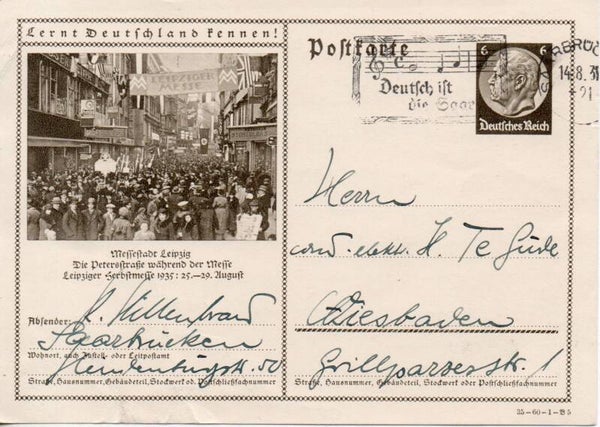 Lernt Deutschland kennen!
LEIPZIGER
MESSE
Messestadt Leipzig
Die Petersstraße während der Messe
Leipziger Herbstmesse 1935: 25.—29. August
Absender: H. Hillenbrand
Saarbrücken
Wohnort, auch Zustell- oder Leitpostamt
Hindenburgstr. 50
Straße, Hausnummer, Gebäudeteil, Stockwerk od. Postschließfachnummer
Postkarte
Deutsch ist
die Saar
ARBRÜC
14.8.35
-21
6 6
Deutsches Reich
Herrn
cand. elektr. H. Te Gude
Wiesbaden
Grillparzerstr. 1
Straße, Hausnummer, Gebäudeteil, Stockwerk oder Postschließfachnummer
35-60-1-B5